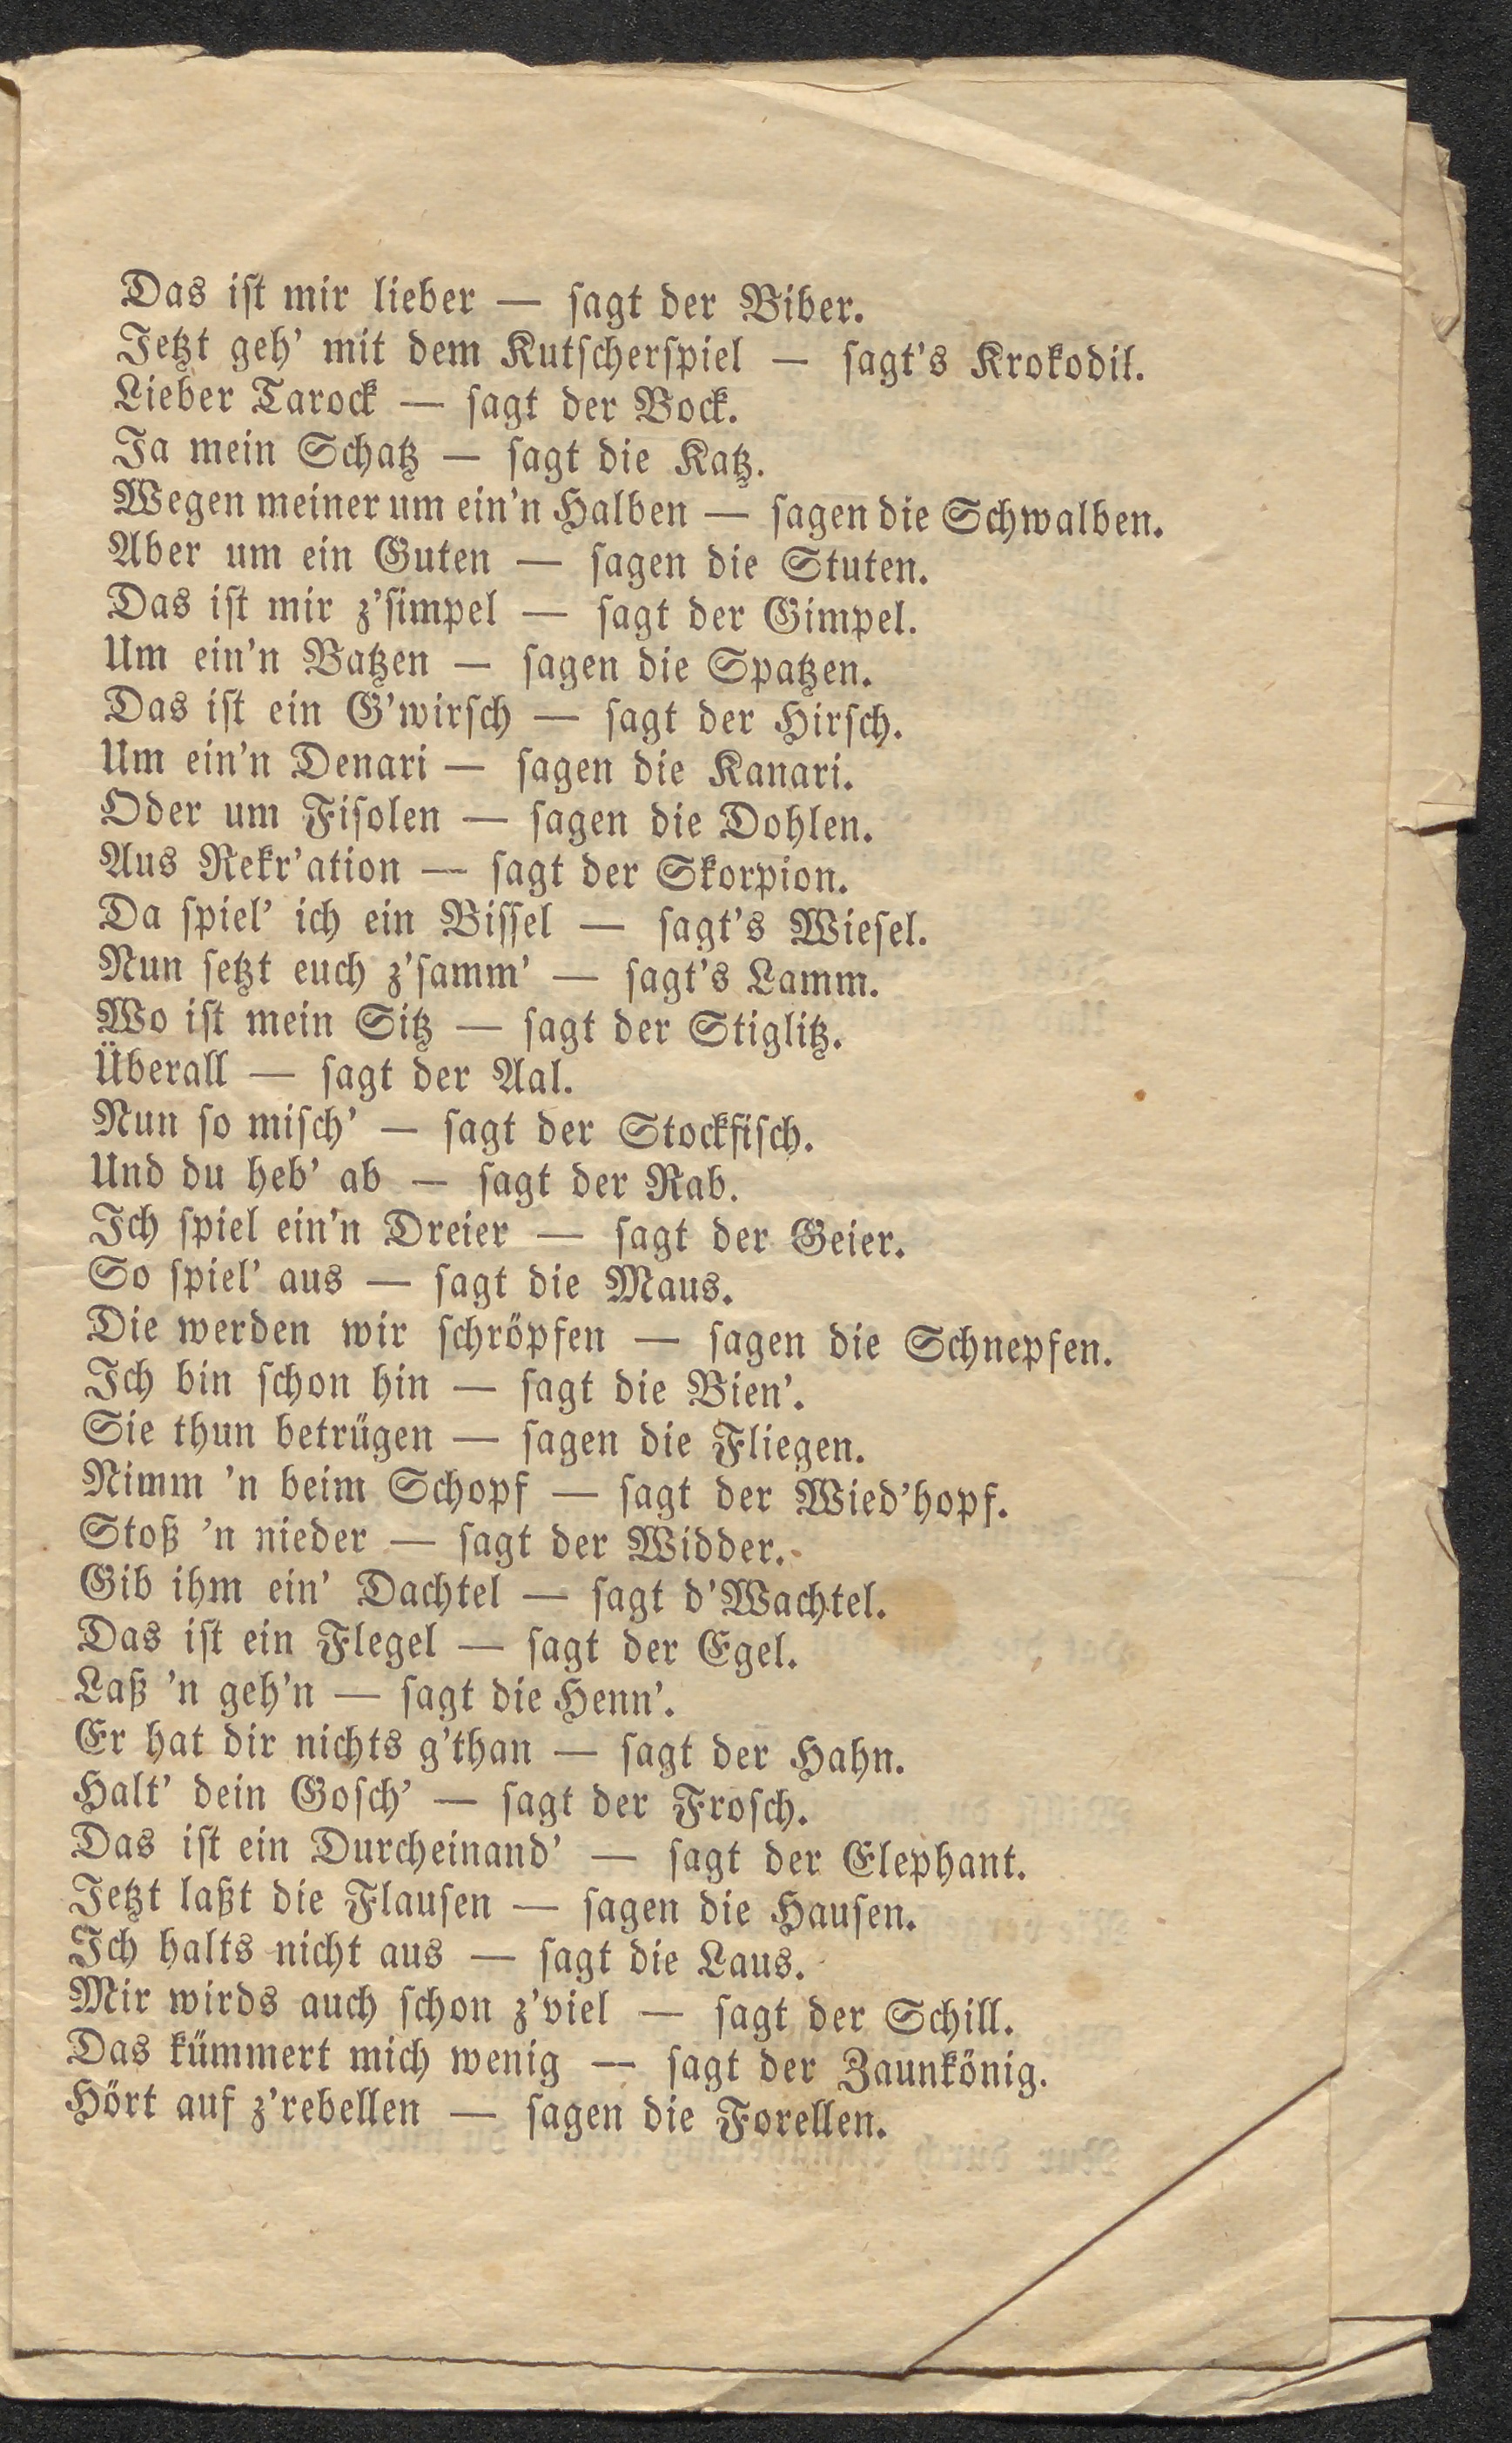 Das iſt mir lieber — ſagt der Biber.
Jetzt geh' mit dem Kutſcherſpiel — ſagt's Krokodil.
Lieber Tarock — ſagt der Bock.
Ja mein Schatz — ſagt die Katz.
Wegen meiner um ein'n Halben — ſagen die Schwalben.
Aber um ein Guten — ſagen die Stuten.
Das iſt mir z'ſimpel — ſagt der Gimpel.
Um ein'n Batzen — ſagen die Spatzen.
Das iſt ein G'wirſch — ſagt der Hirſch.
Um ein'n Denari — ſagen die Kanari.
Oder um Fiſolen — ſagen die Dohlen.
Aus Rekr'ation — ſagt der Skorpion.
Da ſpiel' ich ein Biſſel — ſagt's Wieſel.
Nun ſetzt euch z'ſamm' — ſagt's Lamm.
Wo iſt mein Sitz — ſagt der Stiglitz.
Überall — ſagt der Aal.
Nun ſo miſch' — ſagt der Stockfiſch.
Und du heb' ab — ſagt der Rab.
Ich ſpiel ein'n Dreier — ſagt der Geier.
So ſpiel' aus — ſagt die Maus.
Die werden wir ſchröpfen — ſagen die Schnepfen.
Ich bin ſchon hin — ſagt die Bien'.
Sie thun betrügen — ſagen die Fliegen.
Nimm 'n beim Schopf — ſagt der Wied'hopf.
Stoß 'n nieder — ſagt der Widder.
Gib ihm ein' Dachtel — ſagt d'Wachtel.
Das iſt ein Flegel — ſagt der Egel.
Laß 'n geh'n — ſagt die Henn'.
Er hat dir nichts g'than — ſagt der Hahn.
Halt' dein Goſch' — ſagt der Froſch.
Das iſt ein Durcheinand' — ſagt der Elephant.
Jetzt laßt die Flauſen — ſagen die Hauſen.
Ich halts nicht aus — ſagt die Laus.
Mir wirds auch ſchon z'viel — ſagt der Schill.
Das kümmert mich wenig — ſagt der Zaunkönig.
Hört auf z'rebellen — ſagen die Forellen.